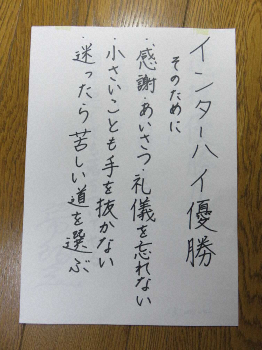 インターハイ優勝
そのために
・感謝・あいさつ・礼儀を忘れない
・小さいことも手を抜かない
・迷ったら苦しい道を選ぶ